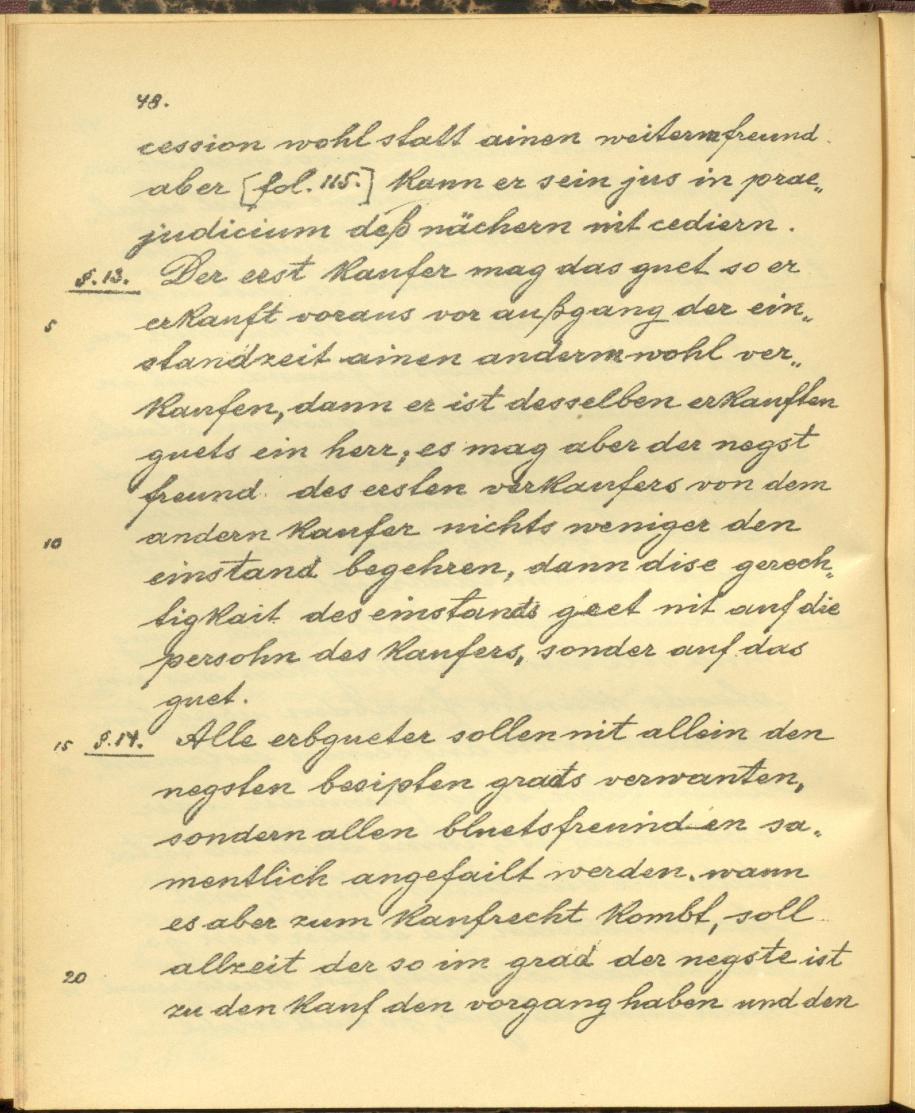 48.
cession wohl statt ainen weitern freund.
aber [fol. 115.] kann er sein jus in prae„
judicium deß nächern nit cediern.
§. 13. Der erst kaufer mag das guet so er
5 erkauft voraus vor außgang der ein„
standzeit ainen andern wohl ver„
kaufen, dann er ist desselben erkauften
guets ein herr, es mag aber der negst
freund des ersten verkaufers von dem
10 andern kaufer nichts weniger den
einstand begehren, dann dise gerech„
tigkait des einstands geet nit auf die
persohn des kaufers, sonder auf das
guet.
15 §. 14. Alle erbgueter sollen nit allein den
negsten besipten grads verwanten,
sondern allen bluetsfreunden sa„
mentlich angefailt werden. wann
es aber zum kaufrecht kombt, soll
20 allzeit der so im grad der negste ist
zu den kauf den vorgang haben und den